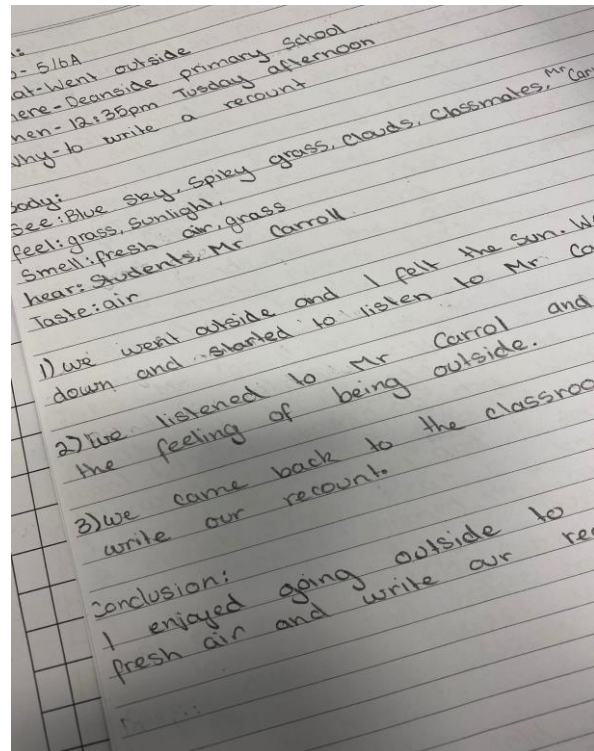 - 5/6A
at-Went outside
ere-Deanside primary School
hen-12:35pm Tusday afternoon
Why-to write a recount
Body:
See:Blue Sky, Spiky grass, Clouds, Classmates, Mr Carr
feel:grass, Sunlight,
Smell:fresh air, grass
hear: Students, Mr Carroll
Taste:air
1) we went outside and I felt the Sun. We
down and started to listen to Mr Ca
2) We listened to Mr Carrol and
the feeling of being outside.
3) we came back to the classroo
write our recount.
Conclusion:
I enjoyed going outside to
fresh air and write our re